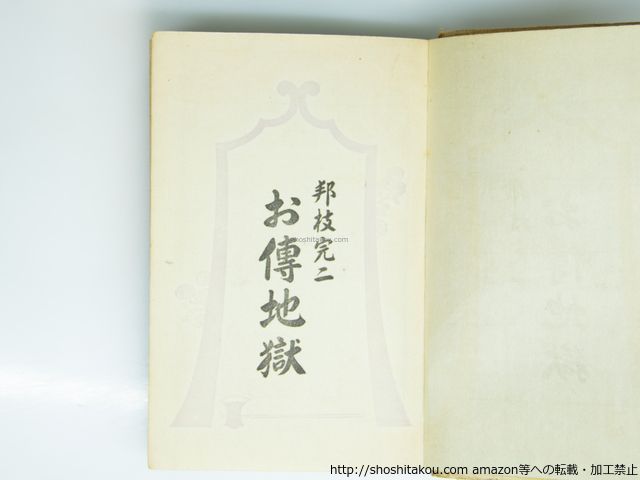 邦枝完二
お傳地獄
shoshitakou.com
http://shoshitakou.com amazon等への転載・加工禁止